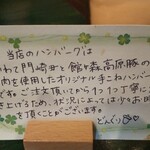 当店のハンバーグは
いわて門崎丑と館ヶ森高原豚の
肉を使用したオリジナル手ごねハンバーグ
です。ご注文頂いてから1つ1つ丁寧に
きますため、状況に
よっては少々お時
ことがございます。
どんぐり